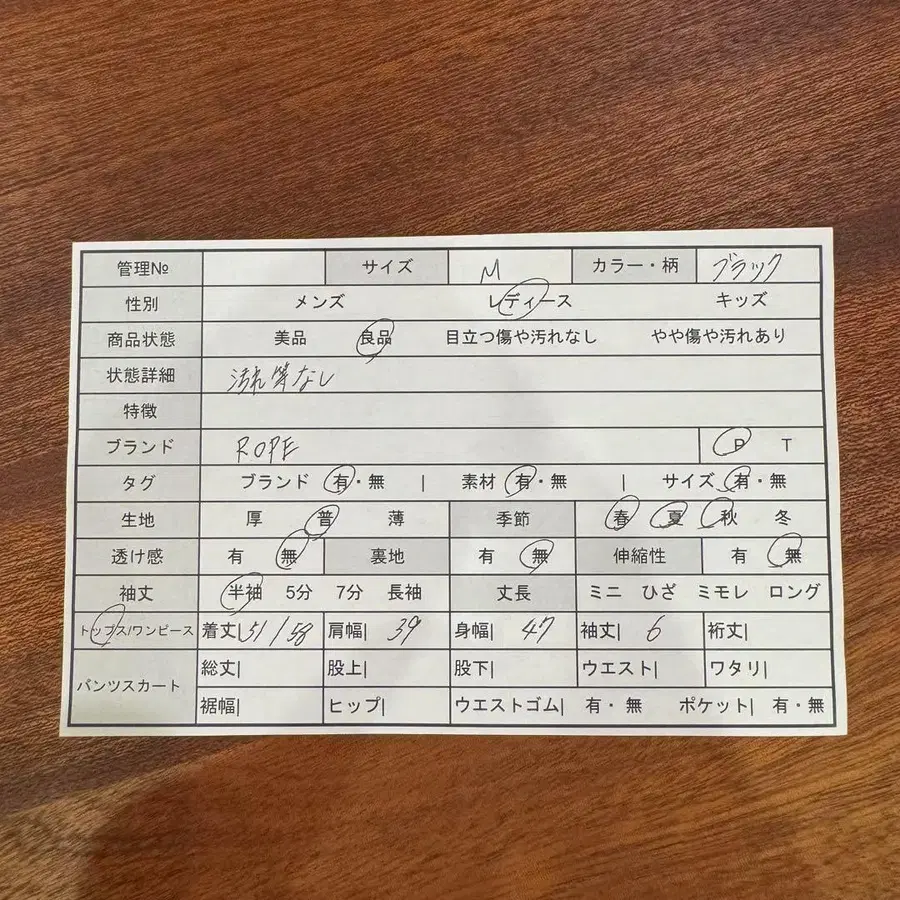 管理№ サイズ M カラー・柄 ブラック
性別 メンズ レディース キッズ
商品状態 美品 良品 目立つ傷や汚れなし やや傷や汚れあり
状態詳細 汚れ等なし
特徴
ブランド ROPE P T
タグ ブランド 有・無 | 素材 有・無 | サイズ 有・無
生地 厚 普 薄 季節 春 夏 秋 冬
透け感 有 無 裏地 有 無 伸縮性 有 無
袖丈 半袖 5分 7分 長袖 丈長 ミニ ひざ ミモレ ロング
トップス/ワンピース 着丈| 51/58 肩幅| 39 身幅| 47 袖丈| 6 裄丈|
パンツスカート 総丈| 股上| 股下| ウエスト| ワタリ|
裾幅| ヒップ| ウエストゴム| 有・無 ポケット| 有・無